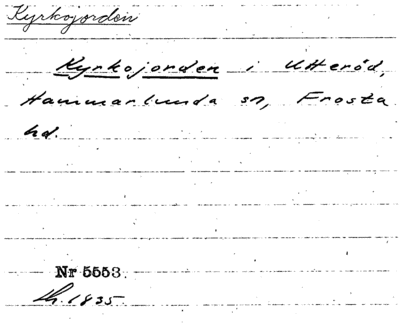 Kyrkojorden
Kyrkojorden i Utteröd,
Hammarlunda sn, Frosta
hd.
Nr 5553.
Lh. 1835.